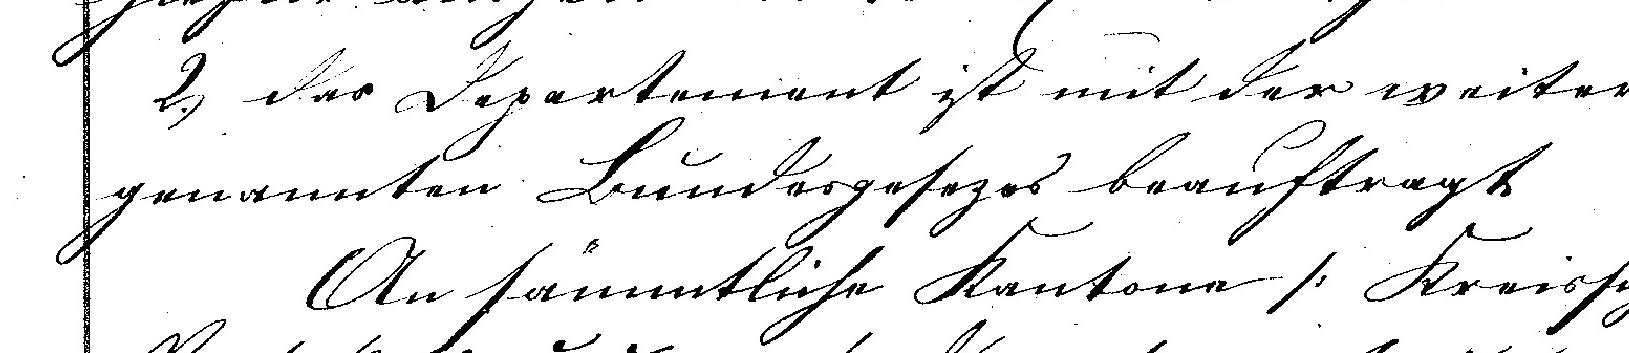 2, das Departement ist mit der weiter
genannten Bundesgesezes beauftragt
An sämmtliche Kantone /: Kreissch